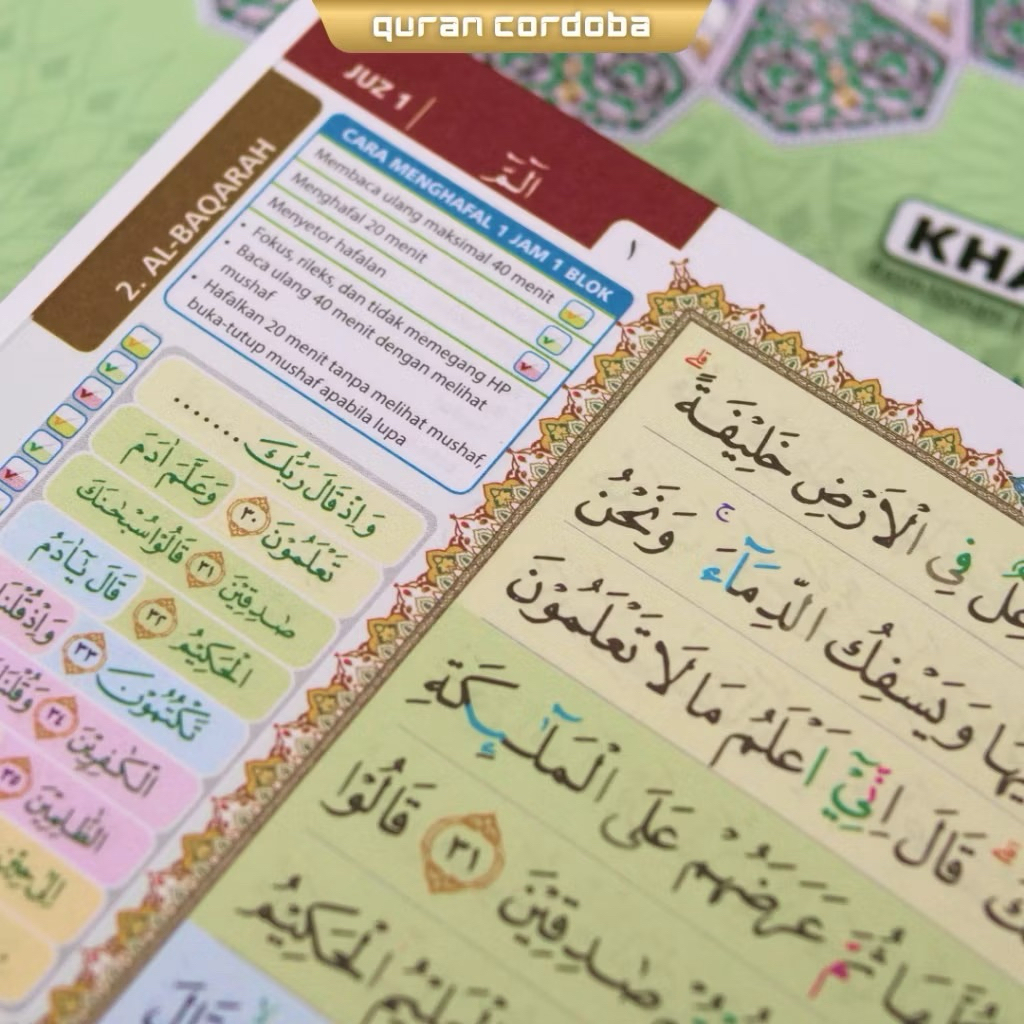 quran cordoba
JUZ 1
الۤمّۤ
١
2. AL-BAQARAH
CARA MENGHAFAL 1 JAM 1 BLOK
Membaca ulang maksimal 40 menit
Menghafal 20 menit
Menyetor hafalan
• Fokus, rileks, dan tidak memegang HP
• Baca ulang 40 menit dengan melihat
mushaf
• Hafalkan 20 menit tanpa melihat mushaf,
buka-tutup mushaf apabila lupa
KHA
وَاِذْ قَالَ رَبُّكَ .......
تَعْلَمُوْنَ ٣٠ وَعَلَّمَ اٰدَمَ
صٰدِقِيْنَ ٣١ قَالُوْا سُبْحٰنَكَ
الْحَكِيْمُ ٣٢ قَالَ يٰٓاٰدَمُ
تَكْتُمُوْنَ ٣٣ وَاِذْ قُلْنَا
الْكٰفِرِيْنَ ٣٤ وَقُلْنَا
الظّٰلِمِيْنَ ٣٥
فِى الْاَرْضِ خَلِيْفَةً ۗ
وَيَسْفِكُ الدِّمَاۤءَ ۚ وَنَحْنُ
قَالَ اِنِّيْٓ اَعْلَمُ مَا لَا تَعْلَمُوْنَ
ثُمَّ عَرَضَهُمْ عَلَى الْمَلٰۤىِٕكَةِ
صٰدِقِيْنَ ٣١ قَالُوْا
الْعَلِيْمُ الْحَكِيْمُ
قَالَ